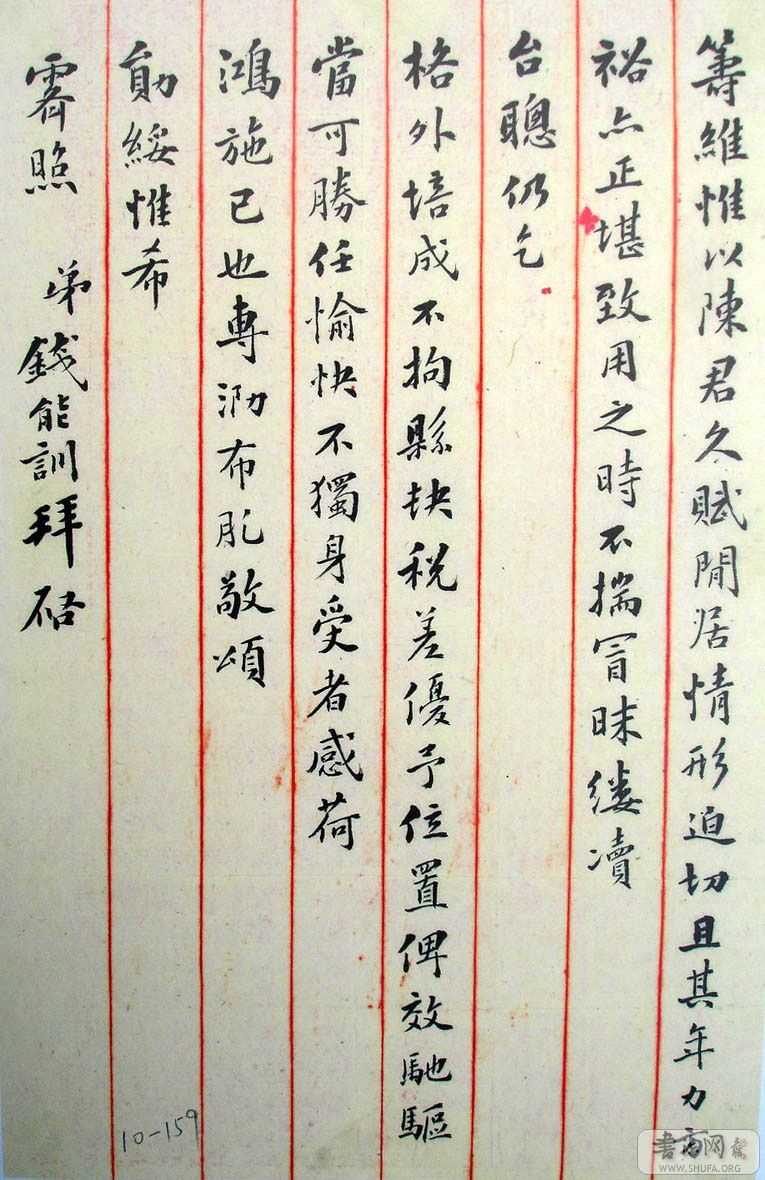 籌維惟以陳君久賦閒居情形迫切且其年力方
裕亦正堪致用之時不揣冒昧縷瀆
台聰仍乞
格外培成不拘縣缺稅差優予位置俾效馳驅
當可勝任愉快不獨身受者感荷
鴻施已也專泐布肊敬頌
勛綏惟希
霽照 弟錢能訓拜啟
10-159
书法网
WWW.SHUFA.ORG